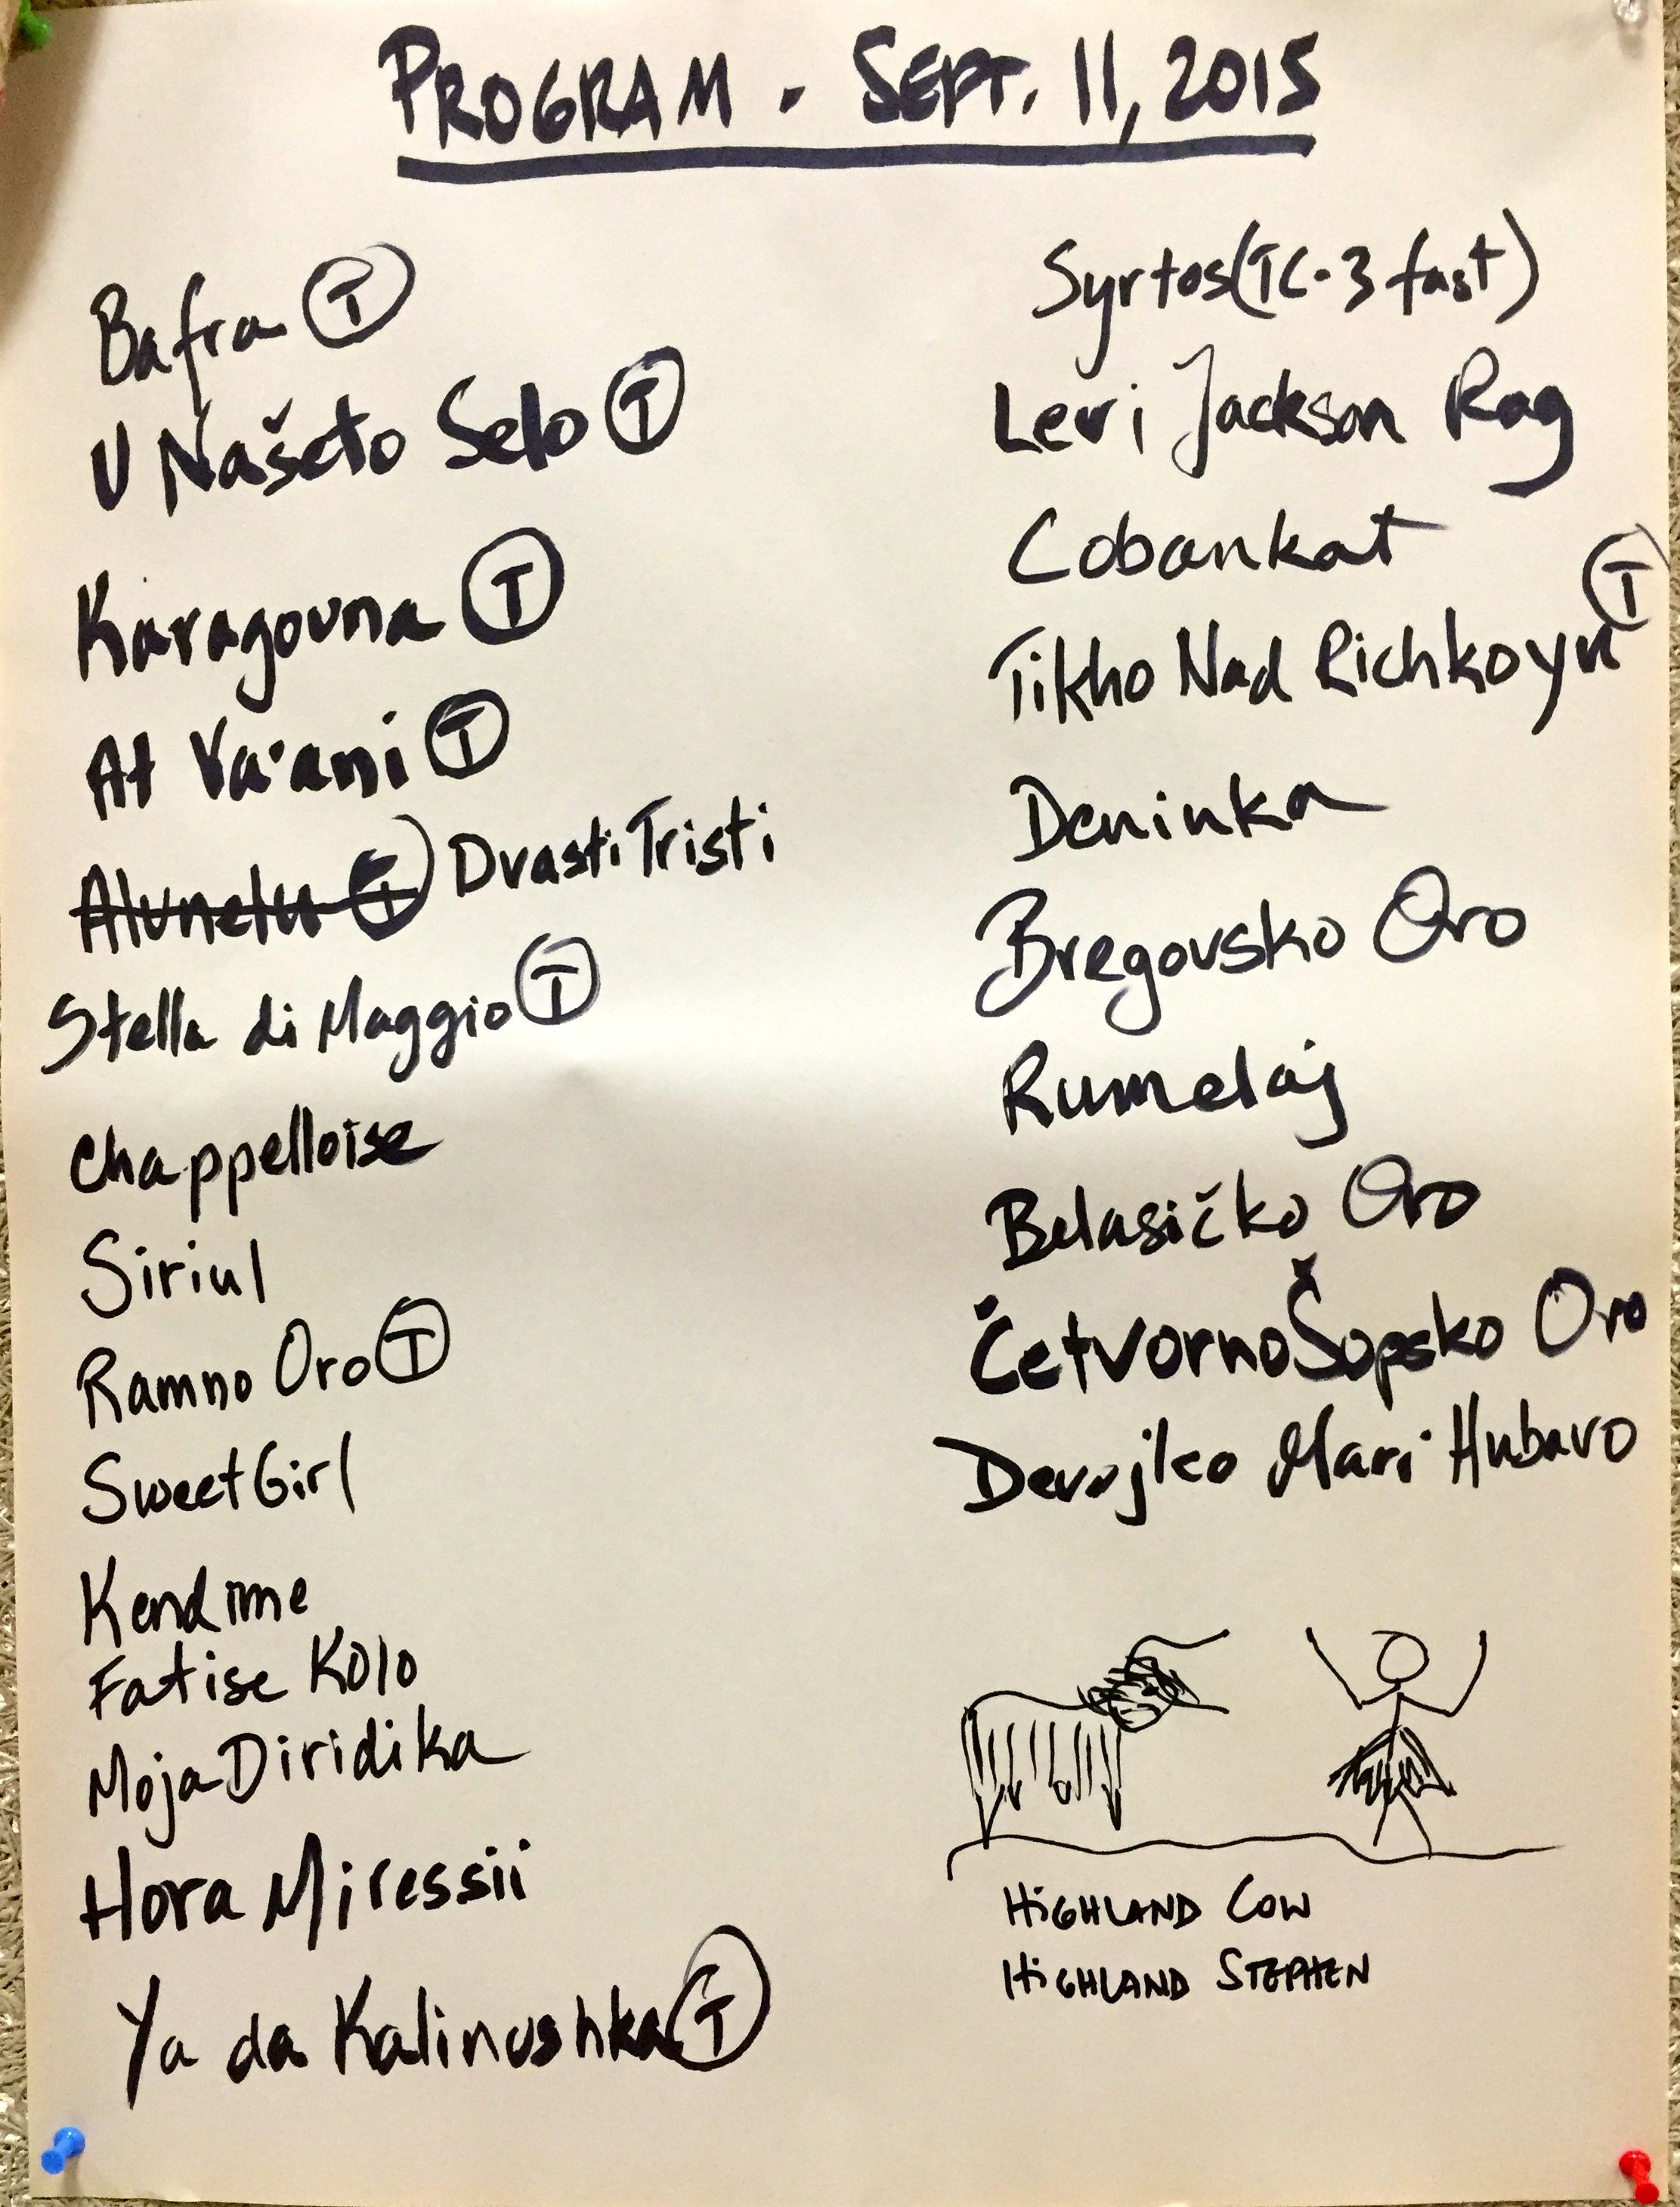 PROGRAM - SEPT. 11, 2015
Bafra Ⓣ
U Našeto Selo Ⓣ
Karagouna Ⓣ
At Va'ani Ⓣ
Alunelu Ⓣ Dvasti Tristi
Stella di Maggio Ⓣ
Chappelloise
Siriul
Ramno Oro Ⓣ
Sweet Girl
Kendime
Fatise Kolo
Moja Diridika
Hora Miressii
Ya da Kalinushka Ⓣ
Syrtos (TC-3 fast)
Levi Jackson Rag
Cobankat
Tikho Nad Richkoyu Ⓣ
Deninka
Bregovsko Oro
Rumelaj
Belasičko Oro
Četvorno Šopsko Oro
Devojko Mari Hubavo
HIGHLAND COW
HIGHLAND STEPHEN